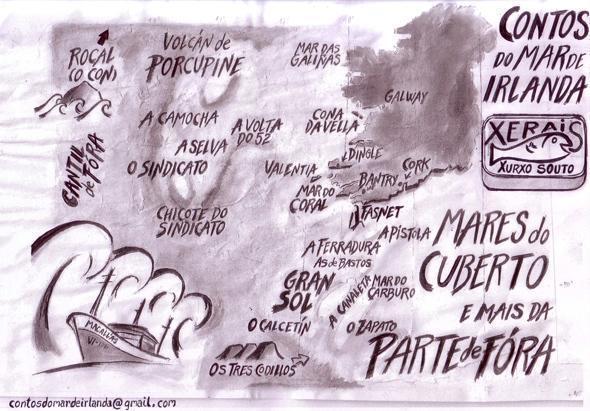 CONTOS
DO MAR DE
IRLANDA
XERAIS
XURXO SOUTO
ROCAL
(O CON)
VOLCÁN de
PORCUPINE
MAR DAS
GALIÑAS
GALWAY
A CAMOCHA
A SELVA
O SINDICATO
A VOLTA
DO 52
CONA
DAVELLA
DINGLE
VALENTIA
BANTRY
CORK
MAR DO
CORAL
FASNET
CANTIL
de FÓRA
CHICOTE DO
SINDICATO
A PISTOLA
A FERRADURA
AS de BASTOS
GRAN
SOL
A CANALETA
MAR DO
CARBURO
O CALCETÍN
O ZAPATO
OS TRES CODILLOS
MARES do
CUBERTO
E MAIS DA
PARTE de FÓRA
contosdomardeirlanda@gmail.com